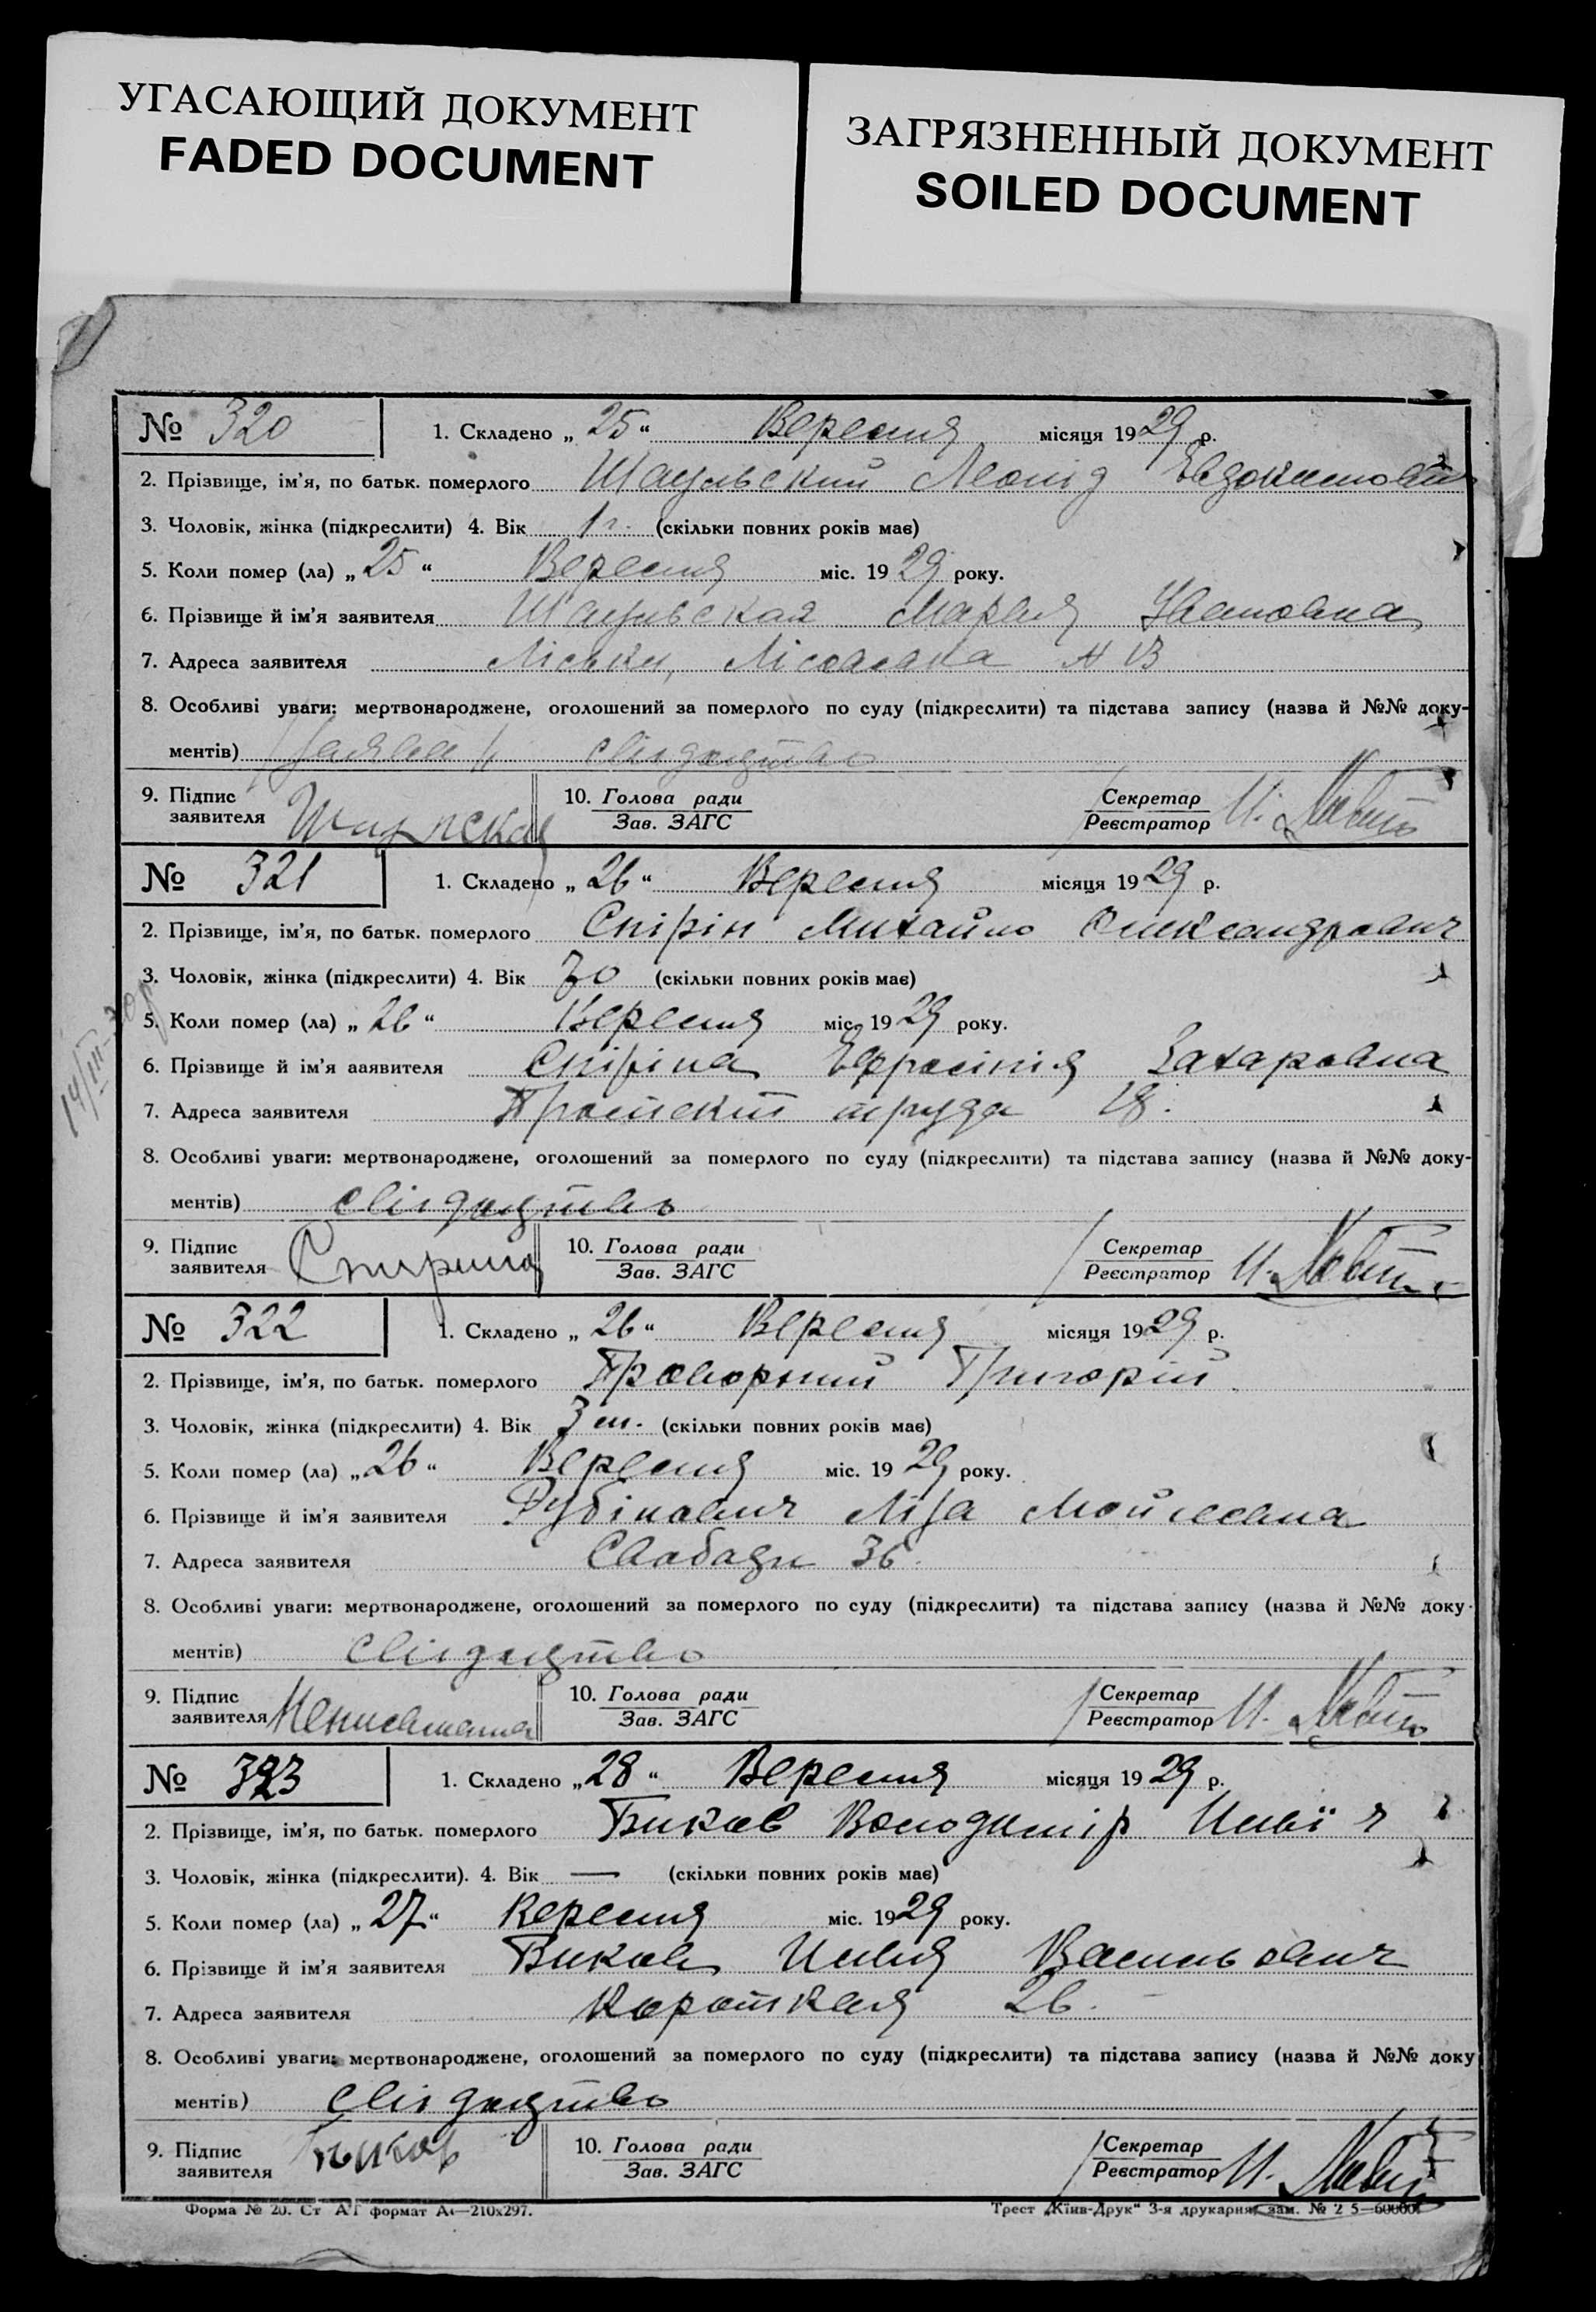 УГАСАЮЩИЙ ДОКУМЕНТ
FADED DOCUMENT
ЗАГРЯЗНЕННЫЙ ДОКУМЕНТ
SOILED DOCUMENT
№ 320 1. Складено „ 25 “ Вересня місяця 1929 р.
2. Прізвище, ім'я, по батьк. померлого Леонід Евдокимович
3. Чоловік, жінка (підкреслити) 4. Вік 1 г. (скільки повних років має)
5. Коли помер (ла) „ 25 “ Вересня міс. 1929 року.
6. Прізвище й ім'я заявителя Мария Ивановна
7. Адреса заявителя Ліски, №
8. Особливі уваги: мертвонароджене, оголошений за померлого по суду (підкреслити) та підстава запису (назва й №№ доку-
ментів) свідоцтво
9. Підпис заявителя 10. Голова ради Зав. ЗАГС Секретар Реєстратор
№ 321 1. Складено „ 26 “ Вересня місяця 1929 р.
2. Прізвище, ім'я, по батьк. померлого Спірін Михайло Олександрович
3. Чоловік, жінка (підкреслити) 4. Вік 70 (скільки повних років має)
5. Коли помер (ла) „ 26 “ Вересня міс. 1929 року.
6. Прізвище й ім'я заявителя Спіріна Ефросінія Захаровна
7. Адреса заявителя Проспект труда 18.
8. Особливі уваги: мертвонароджене, оголошений за померлого по суду (підкреслити) та підстава запису (назва й №№ доку-
ментів) свідоцтво
9. Підпис заявителя Спирина 10. Голова ради Зав. ЗАГС Секретар Реєстратор
№ 322 1. Складено „ 26 “ Вересня місяця 1929 р.
2. Прізвище, ім'я, по батьк. померлого Проворний Григорій
3. Чоловік, жінка (підкреслити) 4. Вік 3 м. (скільки повних років має)
5. Коли помер (ла) „ 26 “ Вересня міс. 1929 року.
6. Прізвище й ім'я заявителя Рубінович Ліза Мойсеевна
7. Адреса заявителя Свободи 36.
8. Особливі уваги: мертвонароджене, оголошений за померлого по суду (підкреслити) та підстава запису (назва й №№ доку-
ментів) свідоцтво
9. Підпис заявителя 10. Голова ради Зав. ЗАГС Секретар Реєстратор
№ 323 1. Складено „ 28 “ Вересня місяця 1929 р.
2. Прізвище, ім'я, по батьк. померлого Биков Володимір Ильїч
3. Чоловік, жінка (підкреслити). 4. Вік — (скільки повних років має)
5. Коли помер (ла) „ 27 “ Вересня міс. 1929 року.
6. Прізвище й ім'я заявителя Биков Илья Васильович
7. Адреса заявителя Короткая 26.
8. Особливі уваги: мертвонароджене, оголошений за померлого по суду (підкреслити) та підстава запису (назва й №№ доку
ментів) свідоцтво
9. Підпис заявителя Быков 10. Голова ради Зав. ЗАГС Секретар Реєстратор
Форма № 20. Ст АТ формат А4—210х297. Трест „Київ-Друк“ 3-я друкарня, зам. №